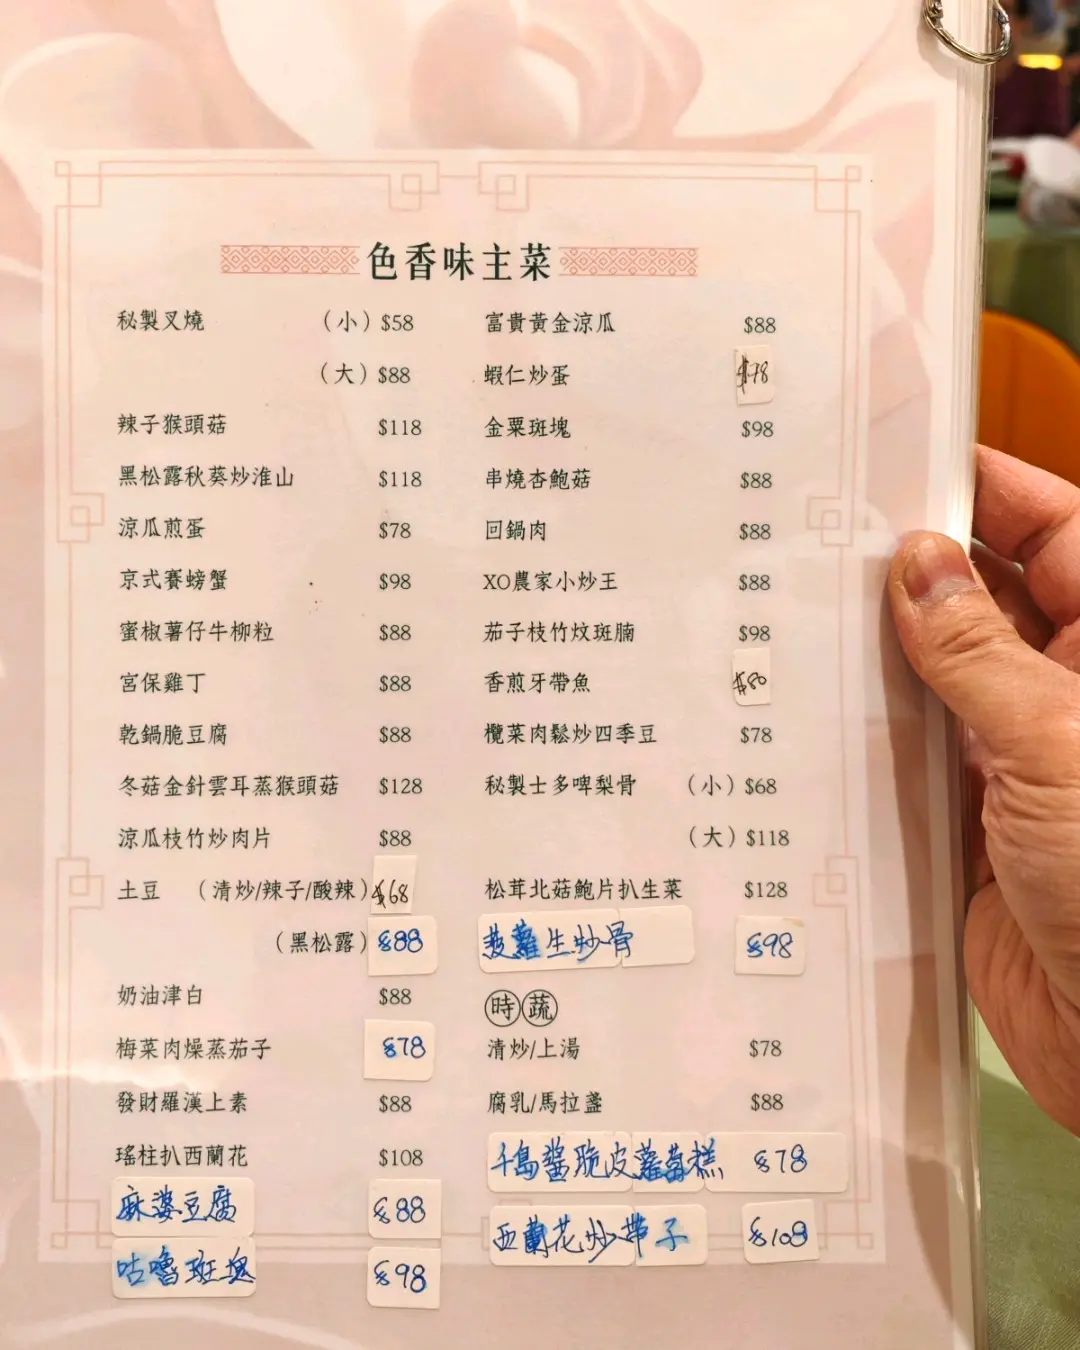 色香味主菜
秘製叉燒 （小）$58
（大）$88
辣子猴頭菇 $118
黑松露秋葵炒淮山 $118
涼瓜煎蛋 $78
京式賽螃蟹 $98
蜜椒薯仔牛柳粒 $88
宮保雞丁 $88
乾鍋脆豆腐 $88
冬菇金針雲耳蒸猴頭菇 $128
涼瓜枝竹炒肉片 $88
土豆 （清炒/辣子/酸辣）$68
（黑松露）$88
奶油津白 $88
梅菜肉燥蒸茄子 $78
發財羅漢上素 $88
瑤柱扒西蘭花 $108
麻婆豆腐 $88
咕嚕斑塊 $98
富貴黃金涼瓜 $88
蝦仁炒蛋 $78
金粟斑塊 $98
串燒杏鮑菇 $88
回鍋肉 $88
XO農家小炒王 $88
茄子枝竹炆斑腩 $98
香煎牙帶魚 $80
欖菜肉鬆炒四季豆 $78
秘製士多啤梨骨 （小）$68
（大）$118
松茸北菇鮑片扒生菜 $128
菠蘿生炒骨 $98
時蔬
清炒/上湯 $78
腐乳/馬拉盞 $88
千島醬脆皮蘿蔔糕 $78
西蘭花炒帶子 $108